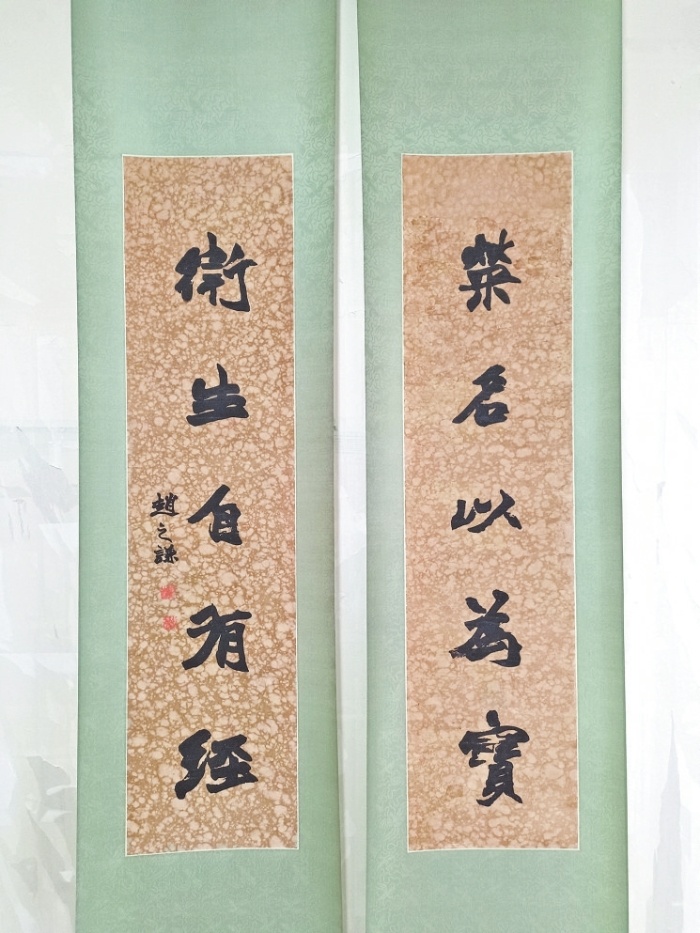 榮名以為寶
衛生自有經
趙之謙